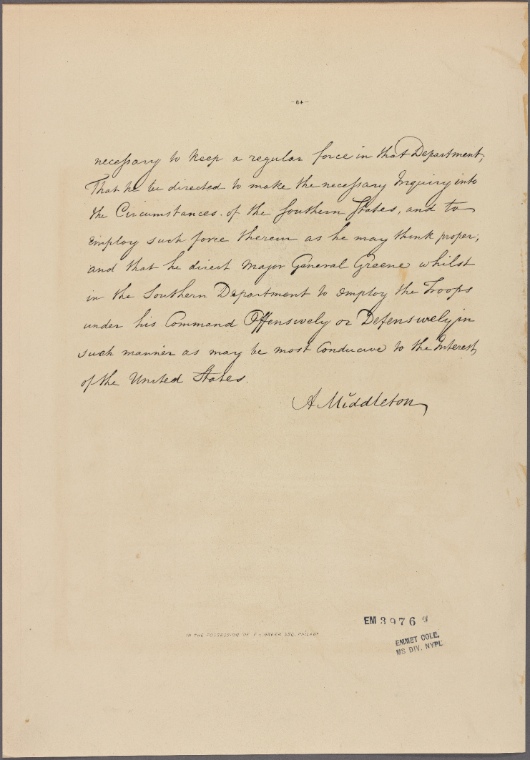 necessary to keep a regular force in that Department,
That he be directed to make the necessary Inquiry into
the Circumstances of the Southern States, and to
employ such force therein as he may think proper,
and that he direct Major General Greene whilst
in the Southern Department to employ the Troops
under his Command Offensively or Defensively in
such manner as may be most Conducive to the Interest
of the United States.
A Middleton
IN THE POSSESSION OF
EM 3976
EMMET COLL.
MS DIV. NYPL